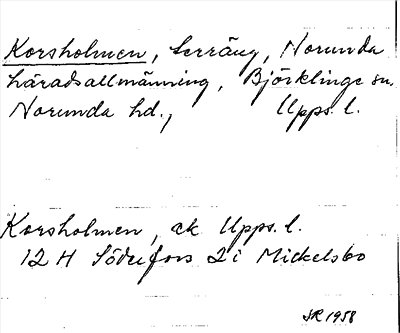 Korsholmen, terräng, Norunda
häradsallmänning, Björklinge sn.
Norunda hd., Upps. l.
Korsholmen, ek Upps. l.
12 H Söderfors 2 i Mickelsbo
SR 1958